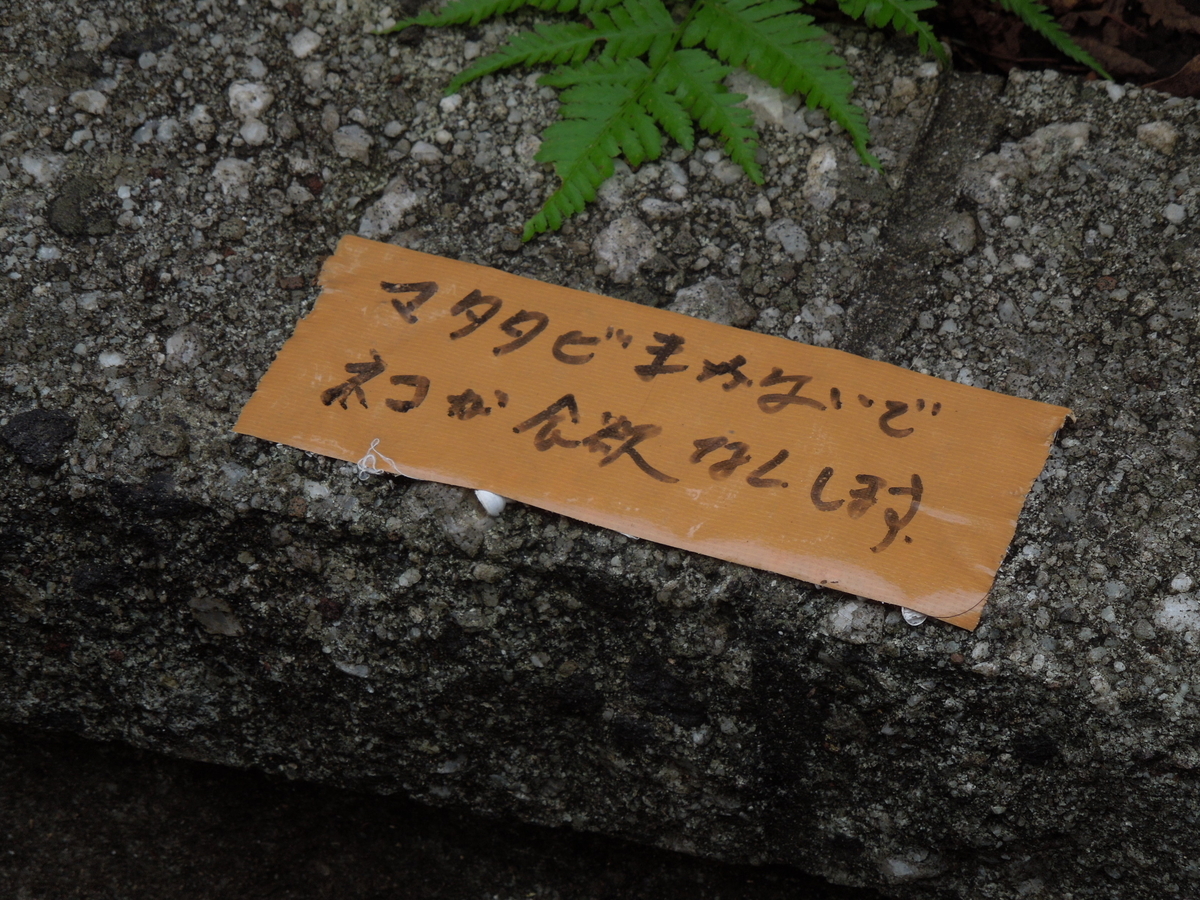 マタタビまかないで
ネコが食欲なくします